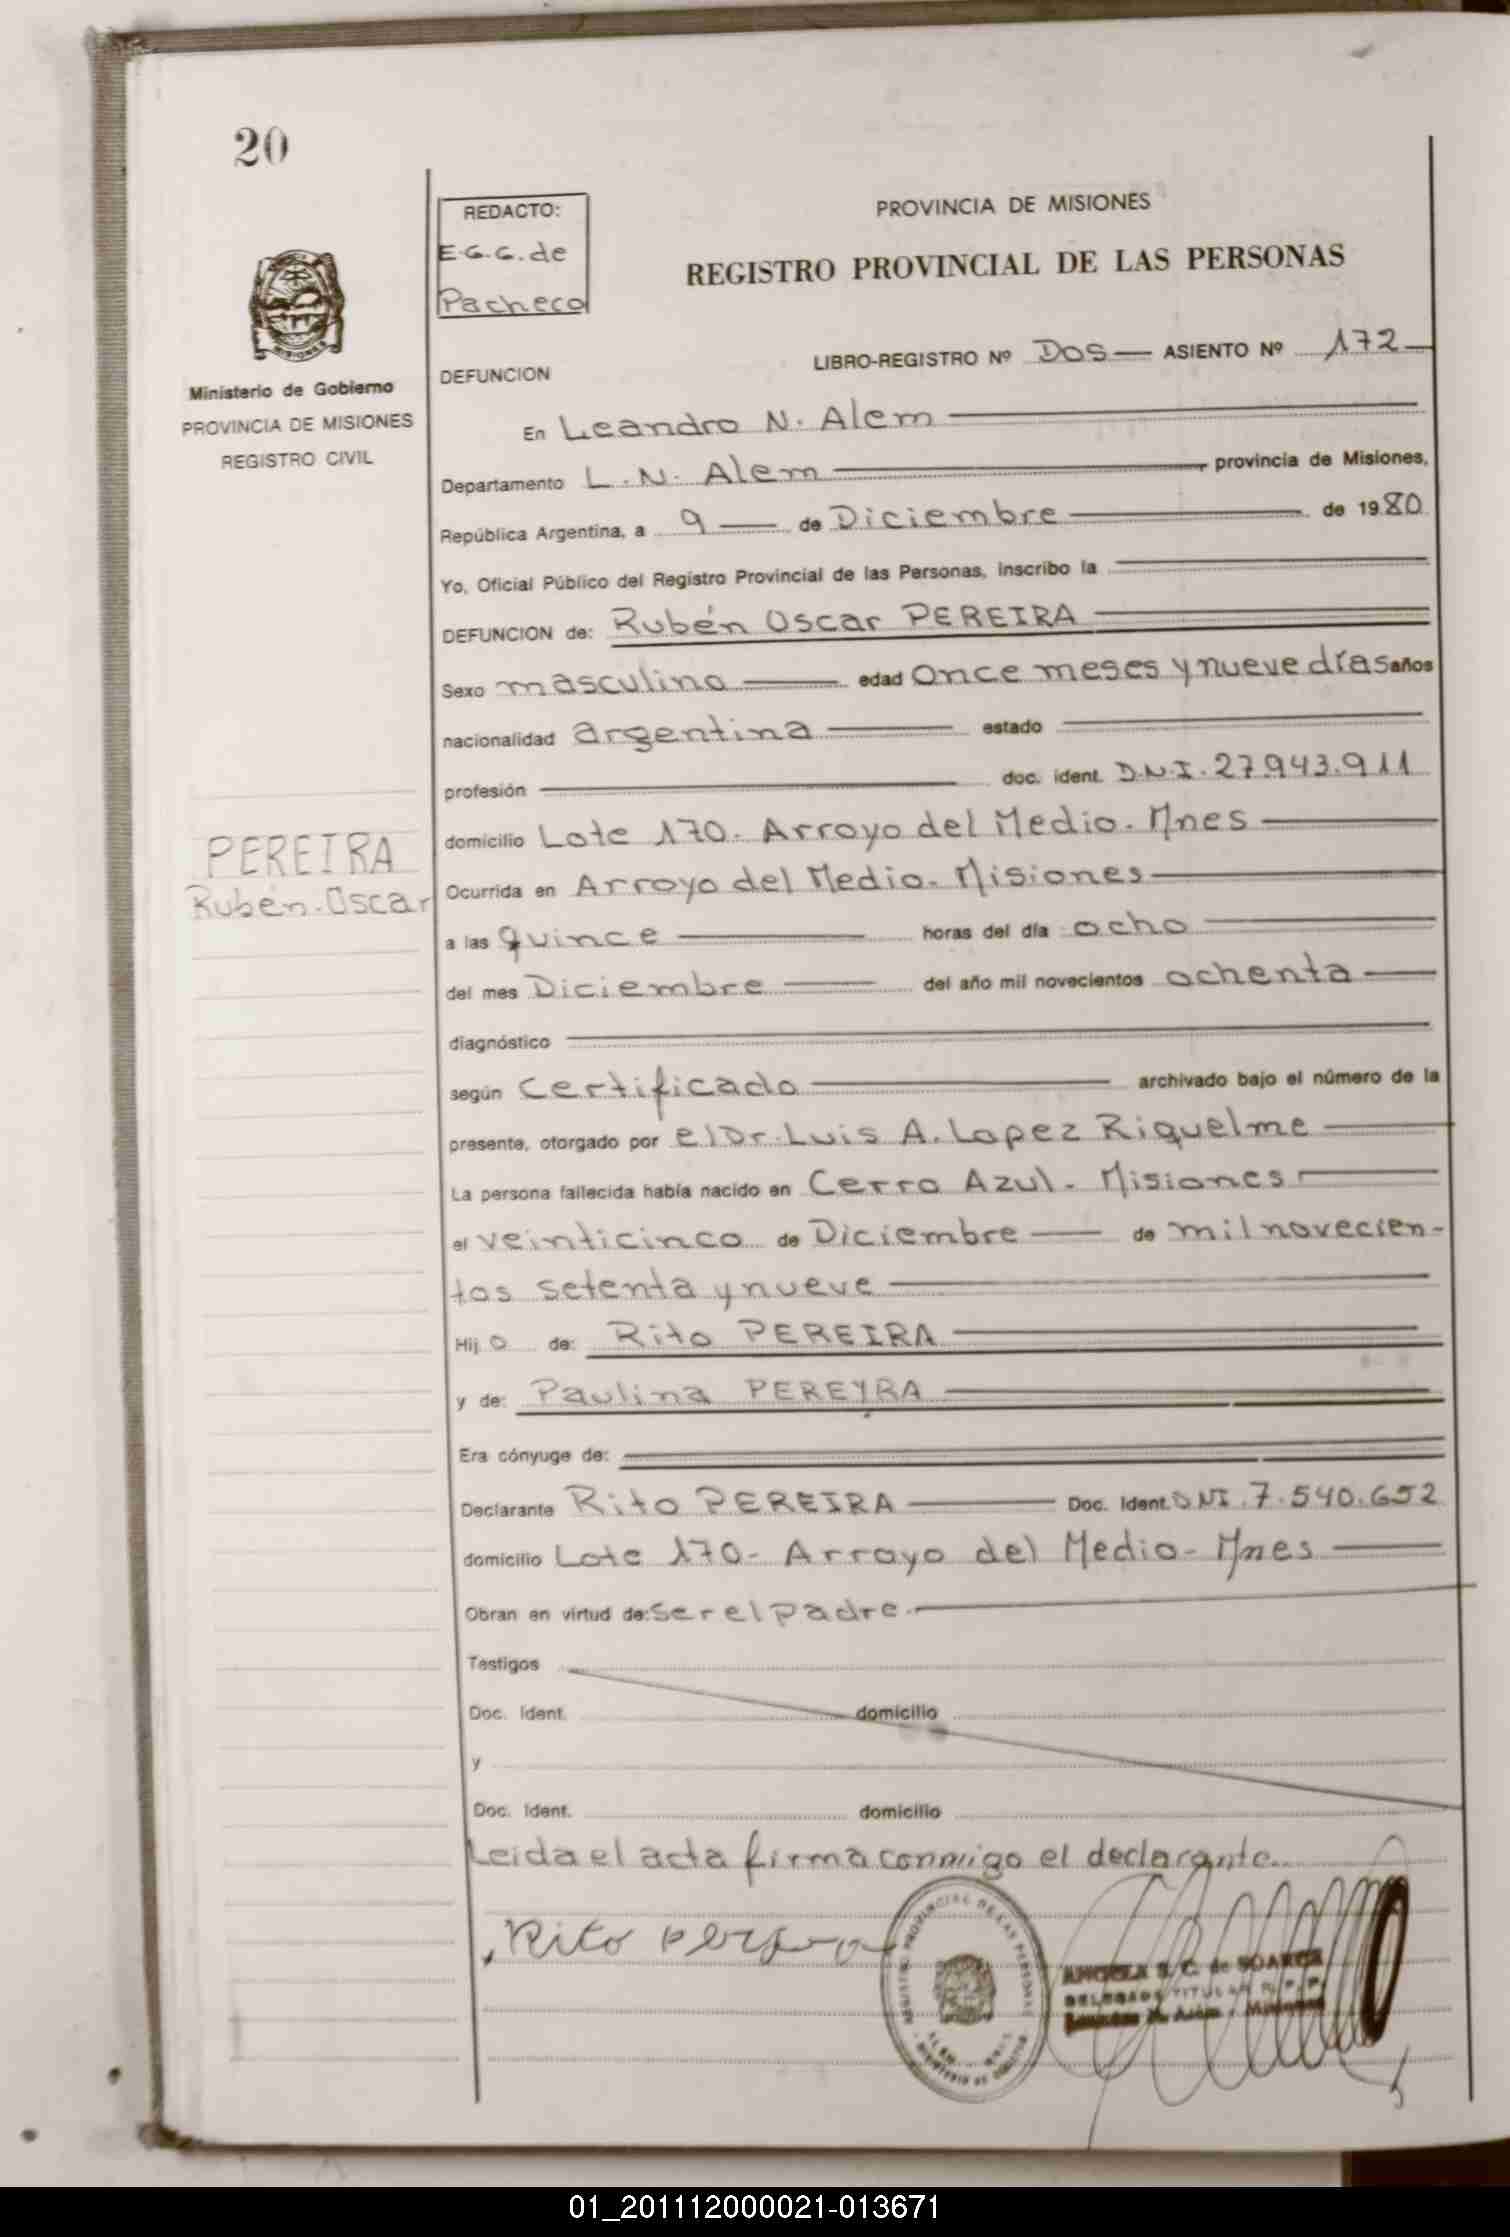 20
REDACTO:
E.G.G. de
Pacheco
PROVINCIA DE MISIONES
REGISTRO PROVINCIAL DE LAS PERSONAS
MISIONES
Ministerio de Gobierno
PROVINCIA DE MISIONES
REGISTRO CIVIL
DEFUNCION
LIBRO-REGISTRO Nº DOS — ASIENTO Nº 172
En Leandro N. Alem
Departamento L. N. Alem , provincia de Misiones,
República Argentina, a 9 — de Diciembre de 1980
Yo, Oficial Público del Registro Provincial de las Personas, inscribo la
DEFUNCION de: Rubén Oscar PEREIRA
Sexo masculino edad Once meses y nueve días años
nacionalidad argentina estado
profesión doc. ident. D.N.I. 27.943.911
domicilio Lote 170. Arroyo del Medio. Mnes
PEREIRA
Rubén. Oscar
Ocurrida en Arroyo del Medio. Misiones
a las quince horas del día ocho
del mes Diciembre del año mil novecientos ochenta
diagnóstico
según certificado archivado bajo el número de la
presente, otorgado por el Dr. Luis A. Lopez Riquelme
La persona fallecida había nacido en Cerro Azul. Misiones
el veinticinco de Diciembre de mil novecien-
tos setenta y nueve
Hijo de: Rito PEREIRA
y de: Paulina PEREYRA
Era cónyuge de:
Declarante Rito PEREIRA Doc. Ident. DNI. 7.540.652
domicilio Lote 170- Arroyo del Medio- Mnes
Obran en virtud de: ser el padre.
Testigos
Doc. Ident. domicilio
y
Doc. Ident. domicilio
Leida el acta firma conmigo el declarante.
Rito
REGISTRO PROVINCIAL DE LAS PERSONAS
S. C. de SOARES
DELEGADO TITULAR R. P. P.
Leandro N. Alem - Misiones
01_201112000021-013671